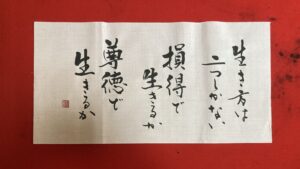 生き方は
二つしかない
損得で
生きるか
尊徳で
生きるか